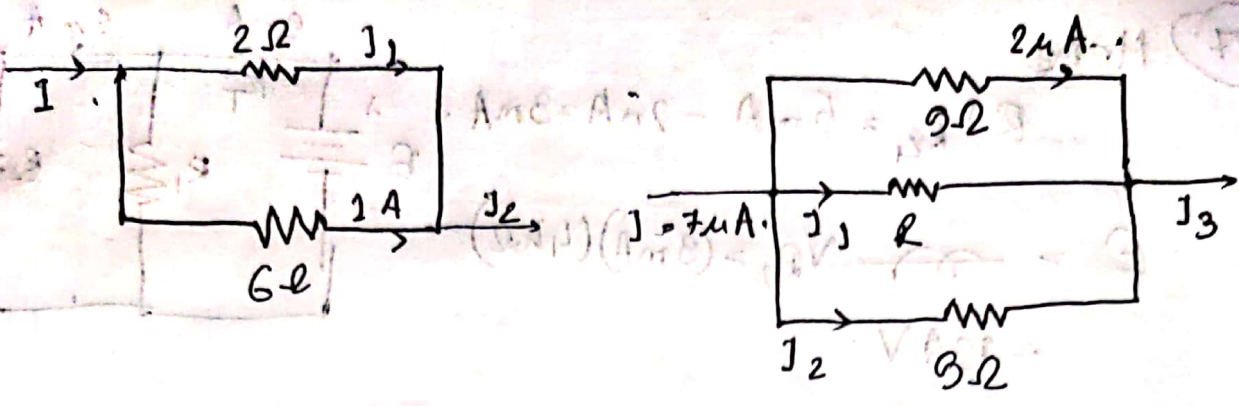 2Ω I₁
I
1 A I₂
6Ω
2μA.
9Ω
I = 7μA. I₁ R I₃
I₂ 9Ω